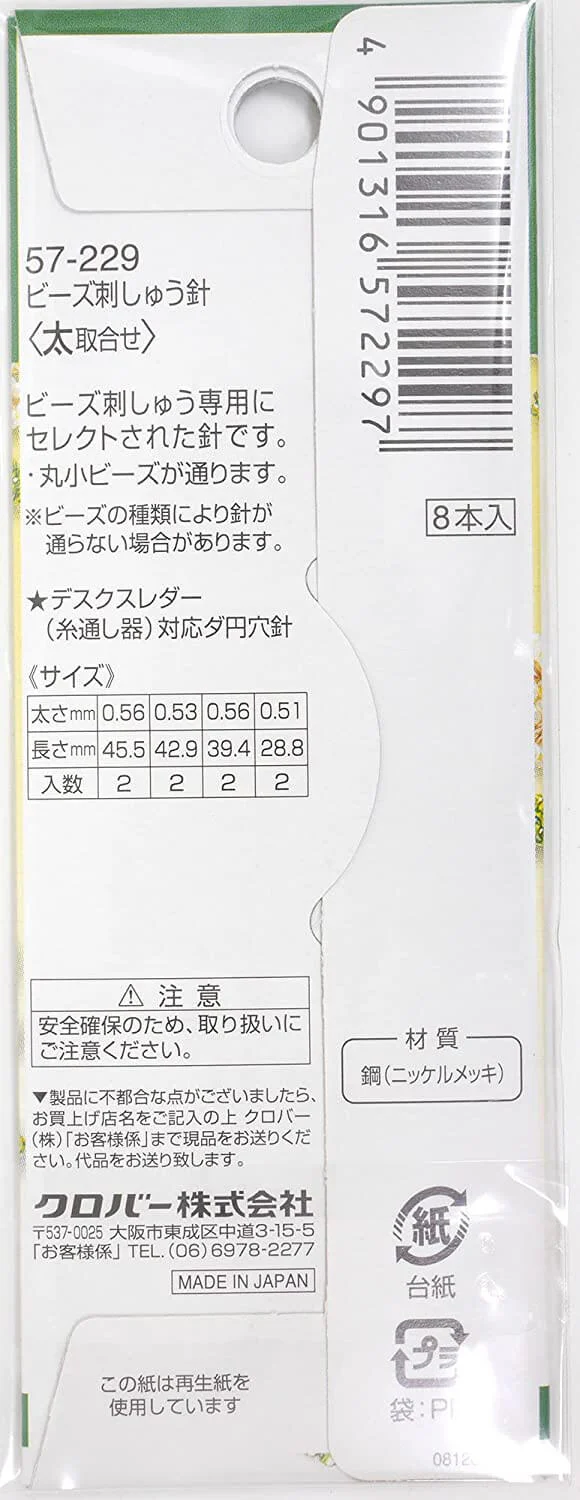 57-229
ビーズ刺しゅう針
〈太取合せ〉
ビーズ刺しゅう専用に
セレクトされた針です。
・丸小ビーズが通ります。
※ビーズの種類により針が
通らない場合があります。
★デスクスレダー
(糸通し器)対応ダ円穴針
《サイズ》
太さmm 0.56 0.53 0.56 0.51
長さmm 45.5 42.9 39.4 28.8
入数 2 2 2 2
⚠ 注意
安全確保のため、取り扱いに
ご注意ください。
▼製品に不都合な点がございましたら、
お買上げ店名をご記入の上 クロバー
(株)「お客様係」まで現品をお送りくだ
さい。代品をお送り致します。
クロバー株式会社
〒537-0025 大阪市東成区中道3-15-5
「お客様係」TEL.(06)6978-2277
MADE IN JAPAN
この紙は再生紙を
使用しています
4 901316 572297
8本入
材質
鋼(ニッケルメッキ)
紙
台紙
プラ
袋:P